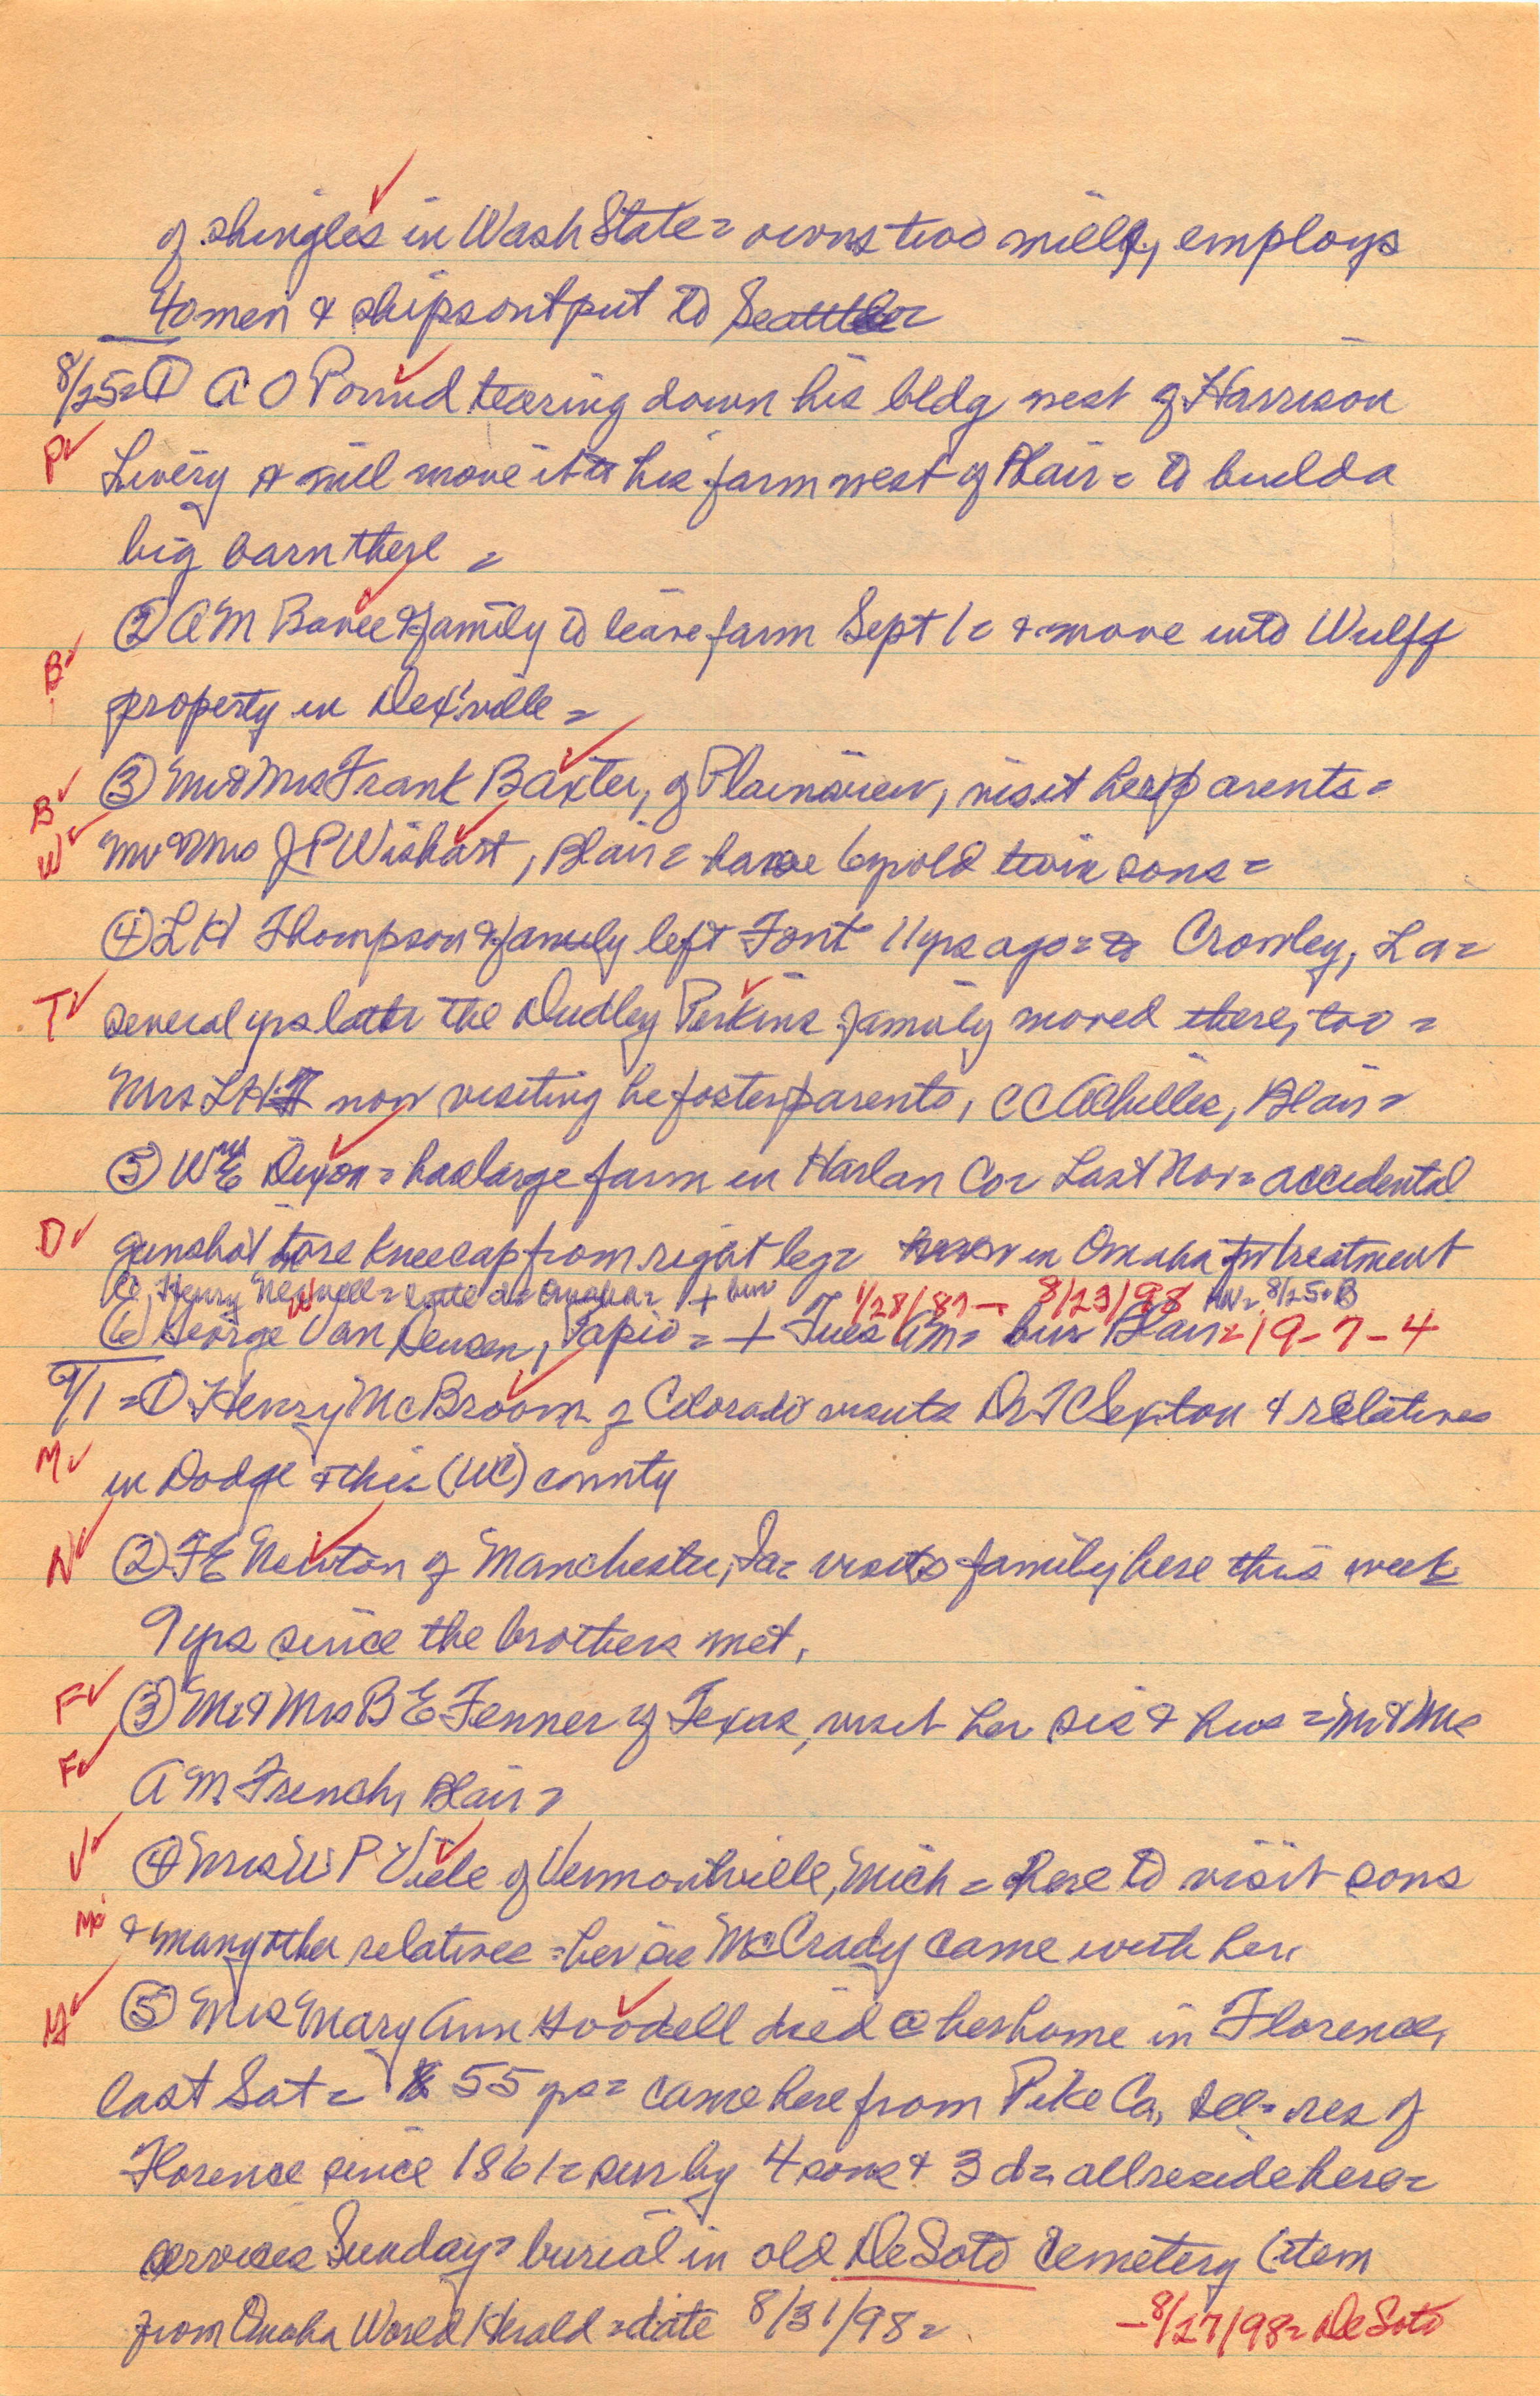 of shingles in Wash State = owns two mills, employs
40 men & ships output to Seattle =
8/25 = ① A O Pound tearing down his bldg west of Harrison
P Livery & will move it to his farm west of Blair = to build a
big barn there =
② A M Bovee & family to leave farm Sept 1 = & move into Wulff
B property in Dex'ville =
B ③ Mr & Mrs Frank Baxter, of Plainview, visit her parents =
W Mr & Mrs J P Wishart, Blair = have 6 yr old twin sons =
④ L H Thompson & family left Font 11 yrs ago = to Crowley, La =
T several yrs later the Dudley Perkins family moved there, too =
Mrs L H T now visiting he foster parents, C C Achilles, Blair =
⑤ W E Dixon = has large farm in Harlan Co = Last Nov = accidental
D gunshot tore kneecap from right leg = now in Omaha for treatment
Henry + bur 1/28/87 - 8/23/98 8/25 = B
⑥ George Van Deusen, Papio = + Tues am = bur Blair = 19-7-4
9/1 = ① Henry McBroom of Colorado visits Dr T C Sexton & relatives
M in Dodge & this (WC) county
N ② F E Newton of Manchester, Ia = visits family here this week
9 yrs since the brothers met,
F ③ Mr & Mrs B E Fenner of Texas, visit her sis & hus = Mr & Mrs
F A M French, Blair =
V ④ Mrs W P Viele of Vermontville, Mich = here to visit sons
Mc & many other relatives = her sis McCrady came with her
G ⑤ Mrs Mary Ann Goodell died @ her home in Florence,
last Sat = 55 yrs = came here from Pike Co, Ill = res of
Florence since 1861 = sur by 4 sons & 3 d = all reside here =
services Sunday = burial in old DeSoto Cemetery (item
from Omaha World Herald = date 8/31/98 = - 8/27/98 = DeSoto